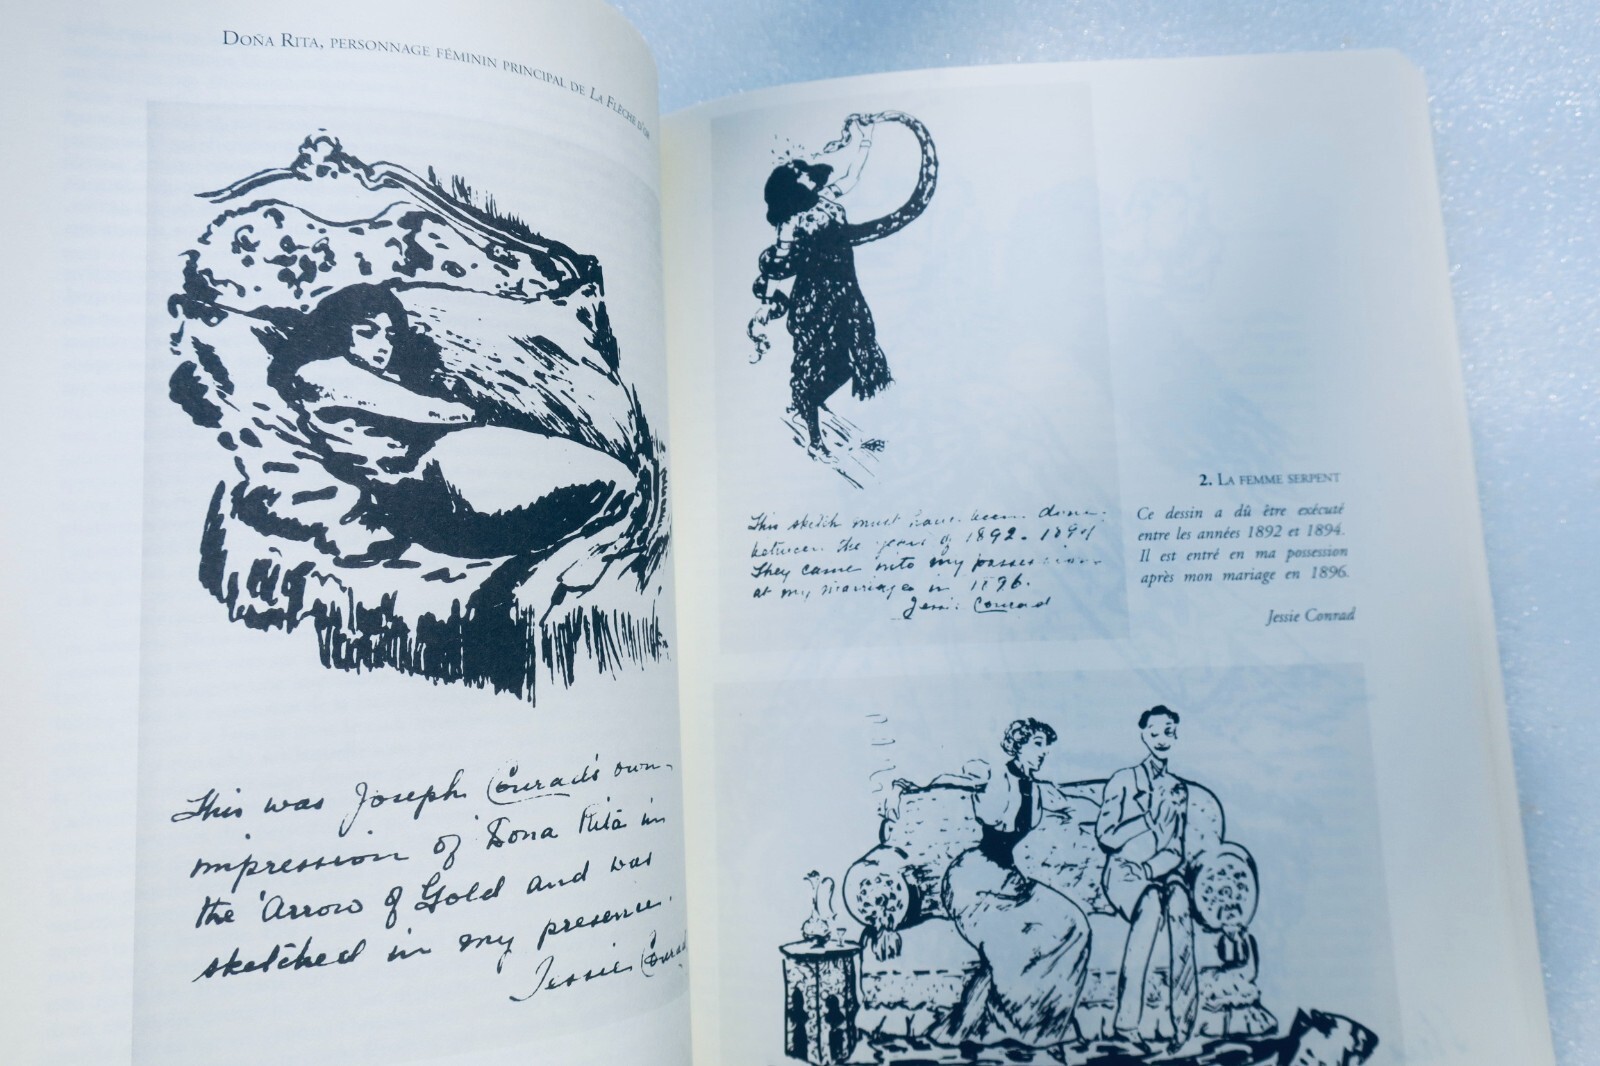 Doña Rita, personnage féminin principal de La Flèche d'or
This was Joseph Conrad's own
impression of Dona Rita in
the Arrow of Gold and was
sketched in my presence.
Jessie Conrad
This sketch must have been done
between the years of 1892-1894
They came into my possession
at my marriage in 1896.
Jessie Conrad
2. La femme serpent
Ce dessin a dû être exécuté
entre les années 1892 et 1894.
Il est entré en ma possession
après mon mariage en 1896.
Jessie Conrad